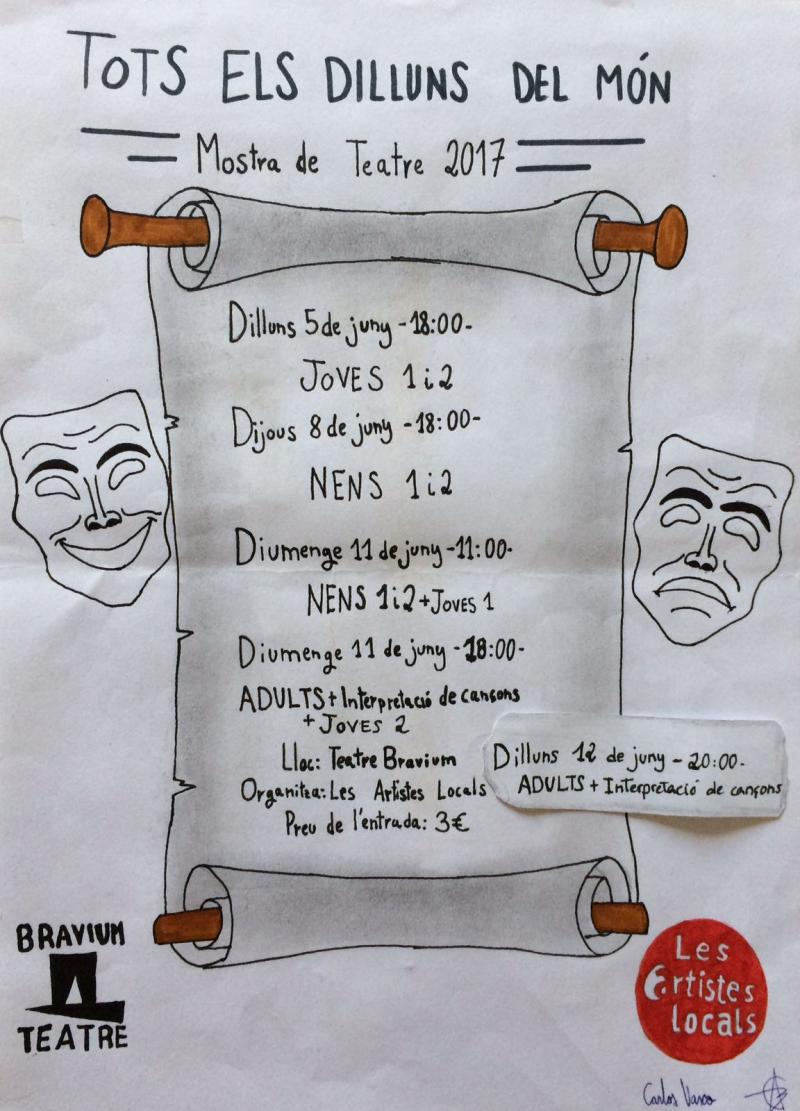 TOTS ELS DILLUNS DEL MÓN
Mostra de Teatre 2017
Dilluns 5 de juny -18:00-
JOVES 1 i 2
Dijous 8 de juny -18:00-
NENS 1 i 2
Diumenge 11 de juny -11:00-
NENS 1 i 2 + JOVES 1
Diumenge 11 de juny -18:00-
ADULTS + Interpretació de cançons
+ JOVES 2
Lloc: Teatre Bravium
Organitza: Les Artistes Locals
Preu de l'entrada: 3€
Dilluns 12 de juny - 20:00-
ADULTS + Interpretació de cançons
BRAVIUM
TEATRE
Les
artistes
locals
Carlos